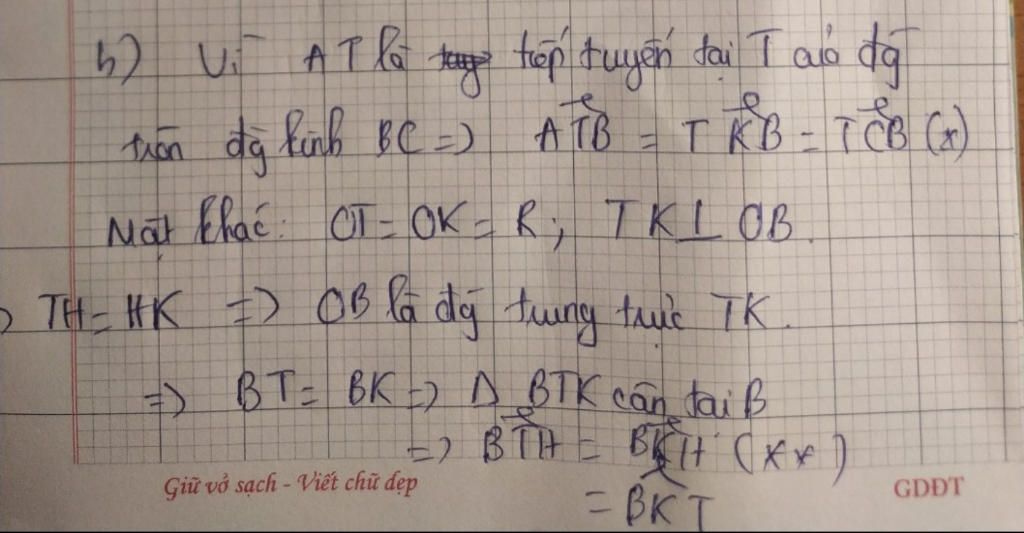 b) Vì AT là tiếp tuyến tại T của đg
tròn đg kính BC => ATB = TKB = TCB (x)
Mặt khác: OT = OK = R; TK ⊥ OB.
TH = HK => OB là đg trung trực TK.
=> BT = BK => Δ BTK cân tại B
=> BTH = BKH (xx)
= BKT
Giữ vở sạch - Viết chữ đẹp
GDĐT